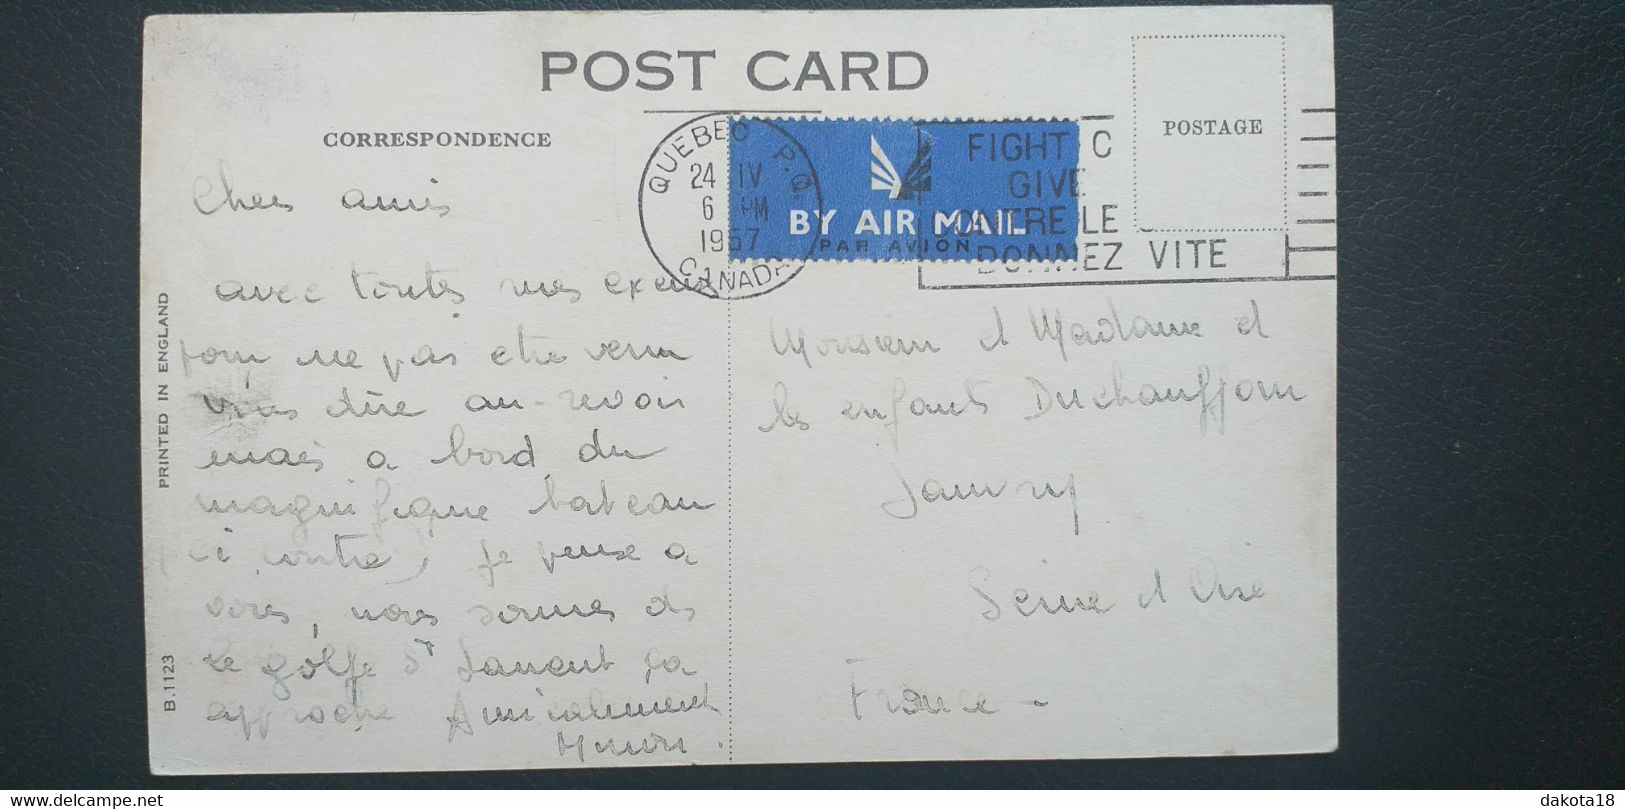 POST CARD
CORRESPONDENCE
POSTAGE
QUEBEC P.Q.
24 IV
6 PM
1957
CANADA
BY AIR MAIL
PAR AVION
FIGHT C
GIVE
CONTRE LE
DONNEZ VITE
Chers amis
avec toutes mes excuses
pour ne pas etre venu
vous dire au-revoir
mais a bord du
magnifique bateau
ci contre, je pense a
vous, nous sommes ds
le golfe St Laurent ça
approche Amicalement
PRINTED IN ENGLAND
B.1123
Monsieur et Madame et
les enfants Duchauffour
Seine et Oise
France -
dakota18